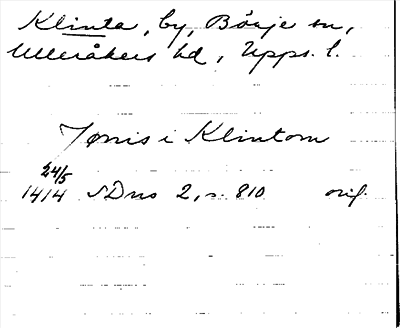 Klinta, by, Börje sn,
Ulleråkers hd, Upps. l.
Jønis i Klintom
24/5
1414 SDns 2, s. 810 orig.